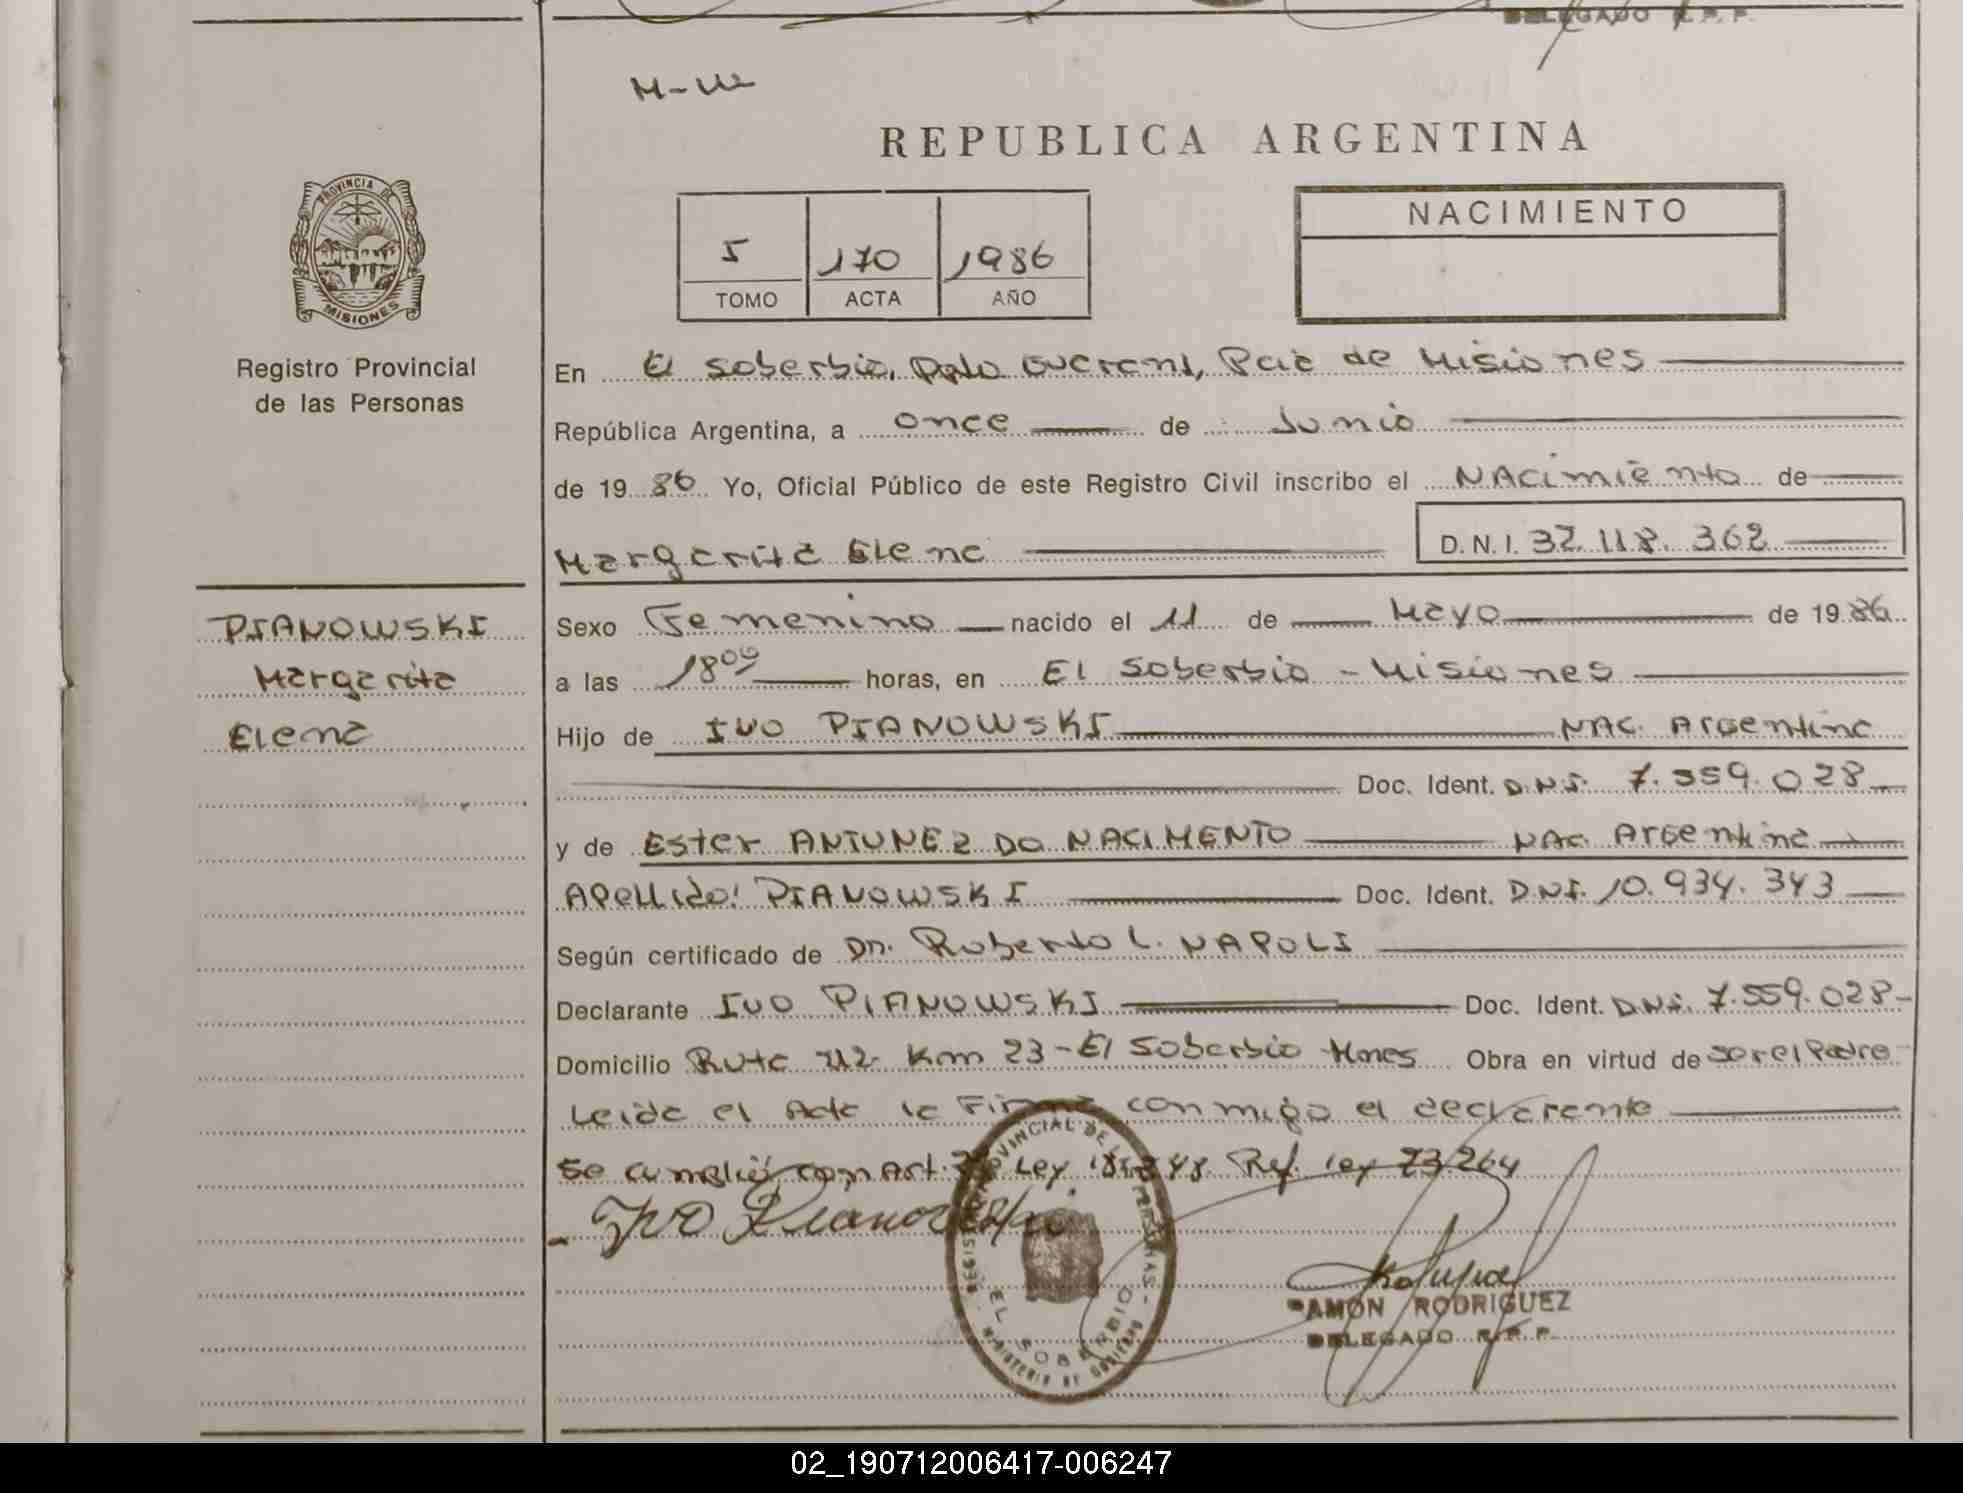 DELEGADO R.P.P.
REPUBLICA ARGENTINA
PROVINCIA DE
MISIONES
Registro Provincial
de las Personas
5 170 1986
TOMO ACTA AÑO
NACIMIENTO
En El Soberbio, Dpto Guarani, Pcia de Misiones
República Argentina, a once de Junio
de 1986 Yo, Oficial Público de este Registro Civil inscribo el NACimiento de
Margarita Elena D.N.I. 32.118.362
PIANOWSKI
Margarita
Elena
Sexo Femenino nacido el 11 de Mayo de 1986
a las 18 00 horas, en El Soberbio - Misiones
Hijo de IVO PIANOWSKI NAC. Argentina
Doc. Ident. D.N.I. 7.559.028
y de Ester ANTUNEZ DO NACIMENTO NAC. Argentina
Apellido: PIANOWSKI Doc. Ident. D.N.I. 10.934.343
Según certificado de Dr. Roberto L. NAPOLI
Declarante IVO PIANOWSKI Doc. Ident. D.N.I. 7.559.028
Domicilio Ruta 212 Km 23 - El Soberbio Mnes Obra en virtud de ser el Padre
Leida el Acta la Firma conmigo el declarante
Se cumplió con Art. Ley Ref. ley 23264
Ivo Pianowski
REGISTRO PROVINCIAL DE LAS PERSONAS
EL SOBERBIO
MINISTERIO DE GOBIERNO
RAMON RODRIGUEZ
DELEGADO R.P.P.
02_190712006417-006247